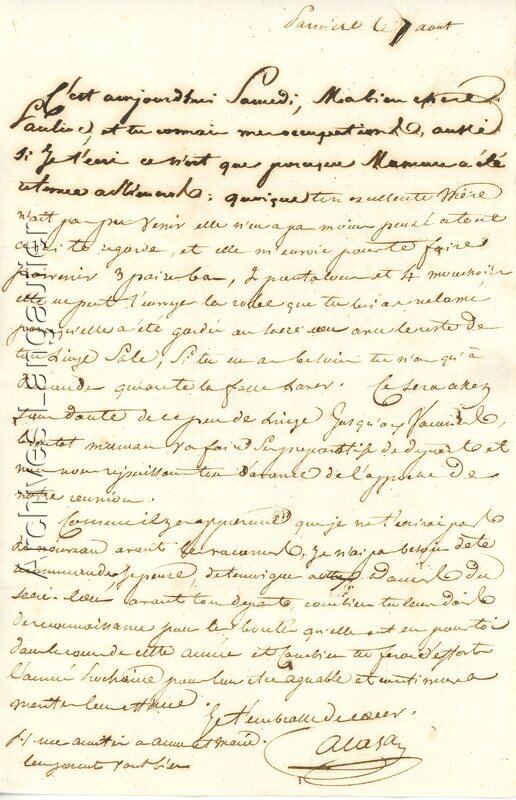 7 aout
C'est aujourdhui Samedi, Ma bien chere
et tu connai mes occupations, aussi
si Je t'ecri ce n'ont que parceque Maman a été
retenue : quoique ton excellente Mère
n'ait pa pu venir elle n'en a pa moins pensé a tout
ce qui te regarde, et elle m'envoie pour te faire
parvenir 3 paire ba, 2 pantalon et 4 mouchoir
elle ne peut t'envoyer la robe que tu lui a reclamé
parcequ'elle a été gardée au sacré coeu avec le reste de
ton Linge Sale, Si tu en a besoin tu n'a qu'à
demandé qu'on te la fasse Laver. Ce sera asez
san doute de ce peu de Linge Jusqu'aux Vacances,
maman va faire Ses preparatifs de depart et
nous nous rejouisson d'avance de l'approche de
notre reunion.
que je ne t'ecrirai pas
de nouveau avant les vacances, Je n'ai pa besoin de te
recommander Je pense, de temoigner a ces dames du
sacré-coeu, avant ton depart, combien tu leur doit
de reconnaissance pour les bontés qu'elle ont eu pour toi
dans le cour de cette année et combien tu fera d'effort
l'année prochaine pour leur etre agreable et continuer a
meriter leur
Je t'embrasse de coeur.
P.S. mes amitié a